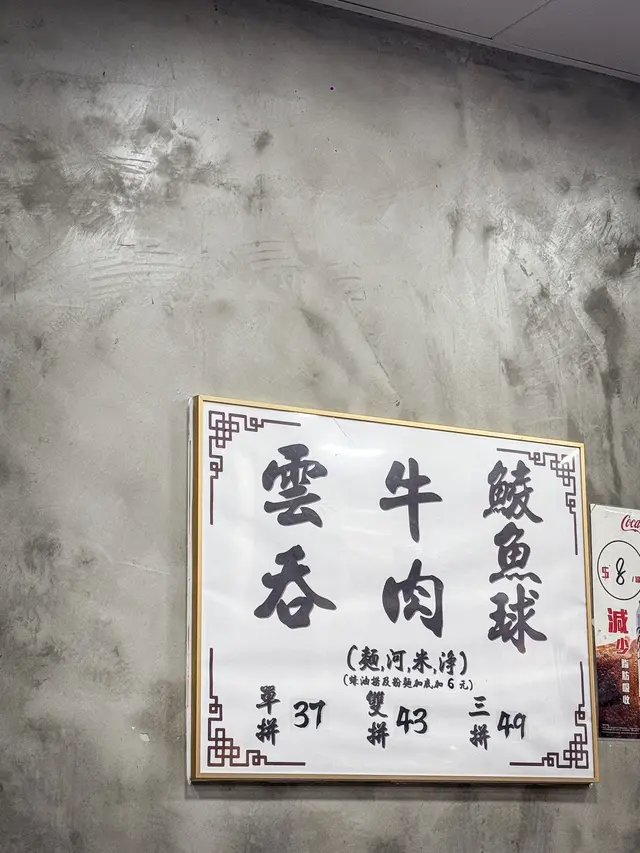 雲吞
牛肉
鯪魚球
(麵,河,米,淨)
(蠔油撈及粉麵加底加 6 元)
單拼 37
雙拼 43
三拼 49
Coca
$ 8
減少
脂肪吸收